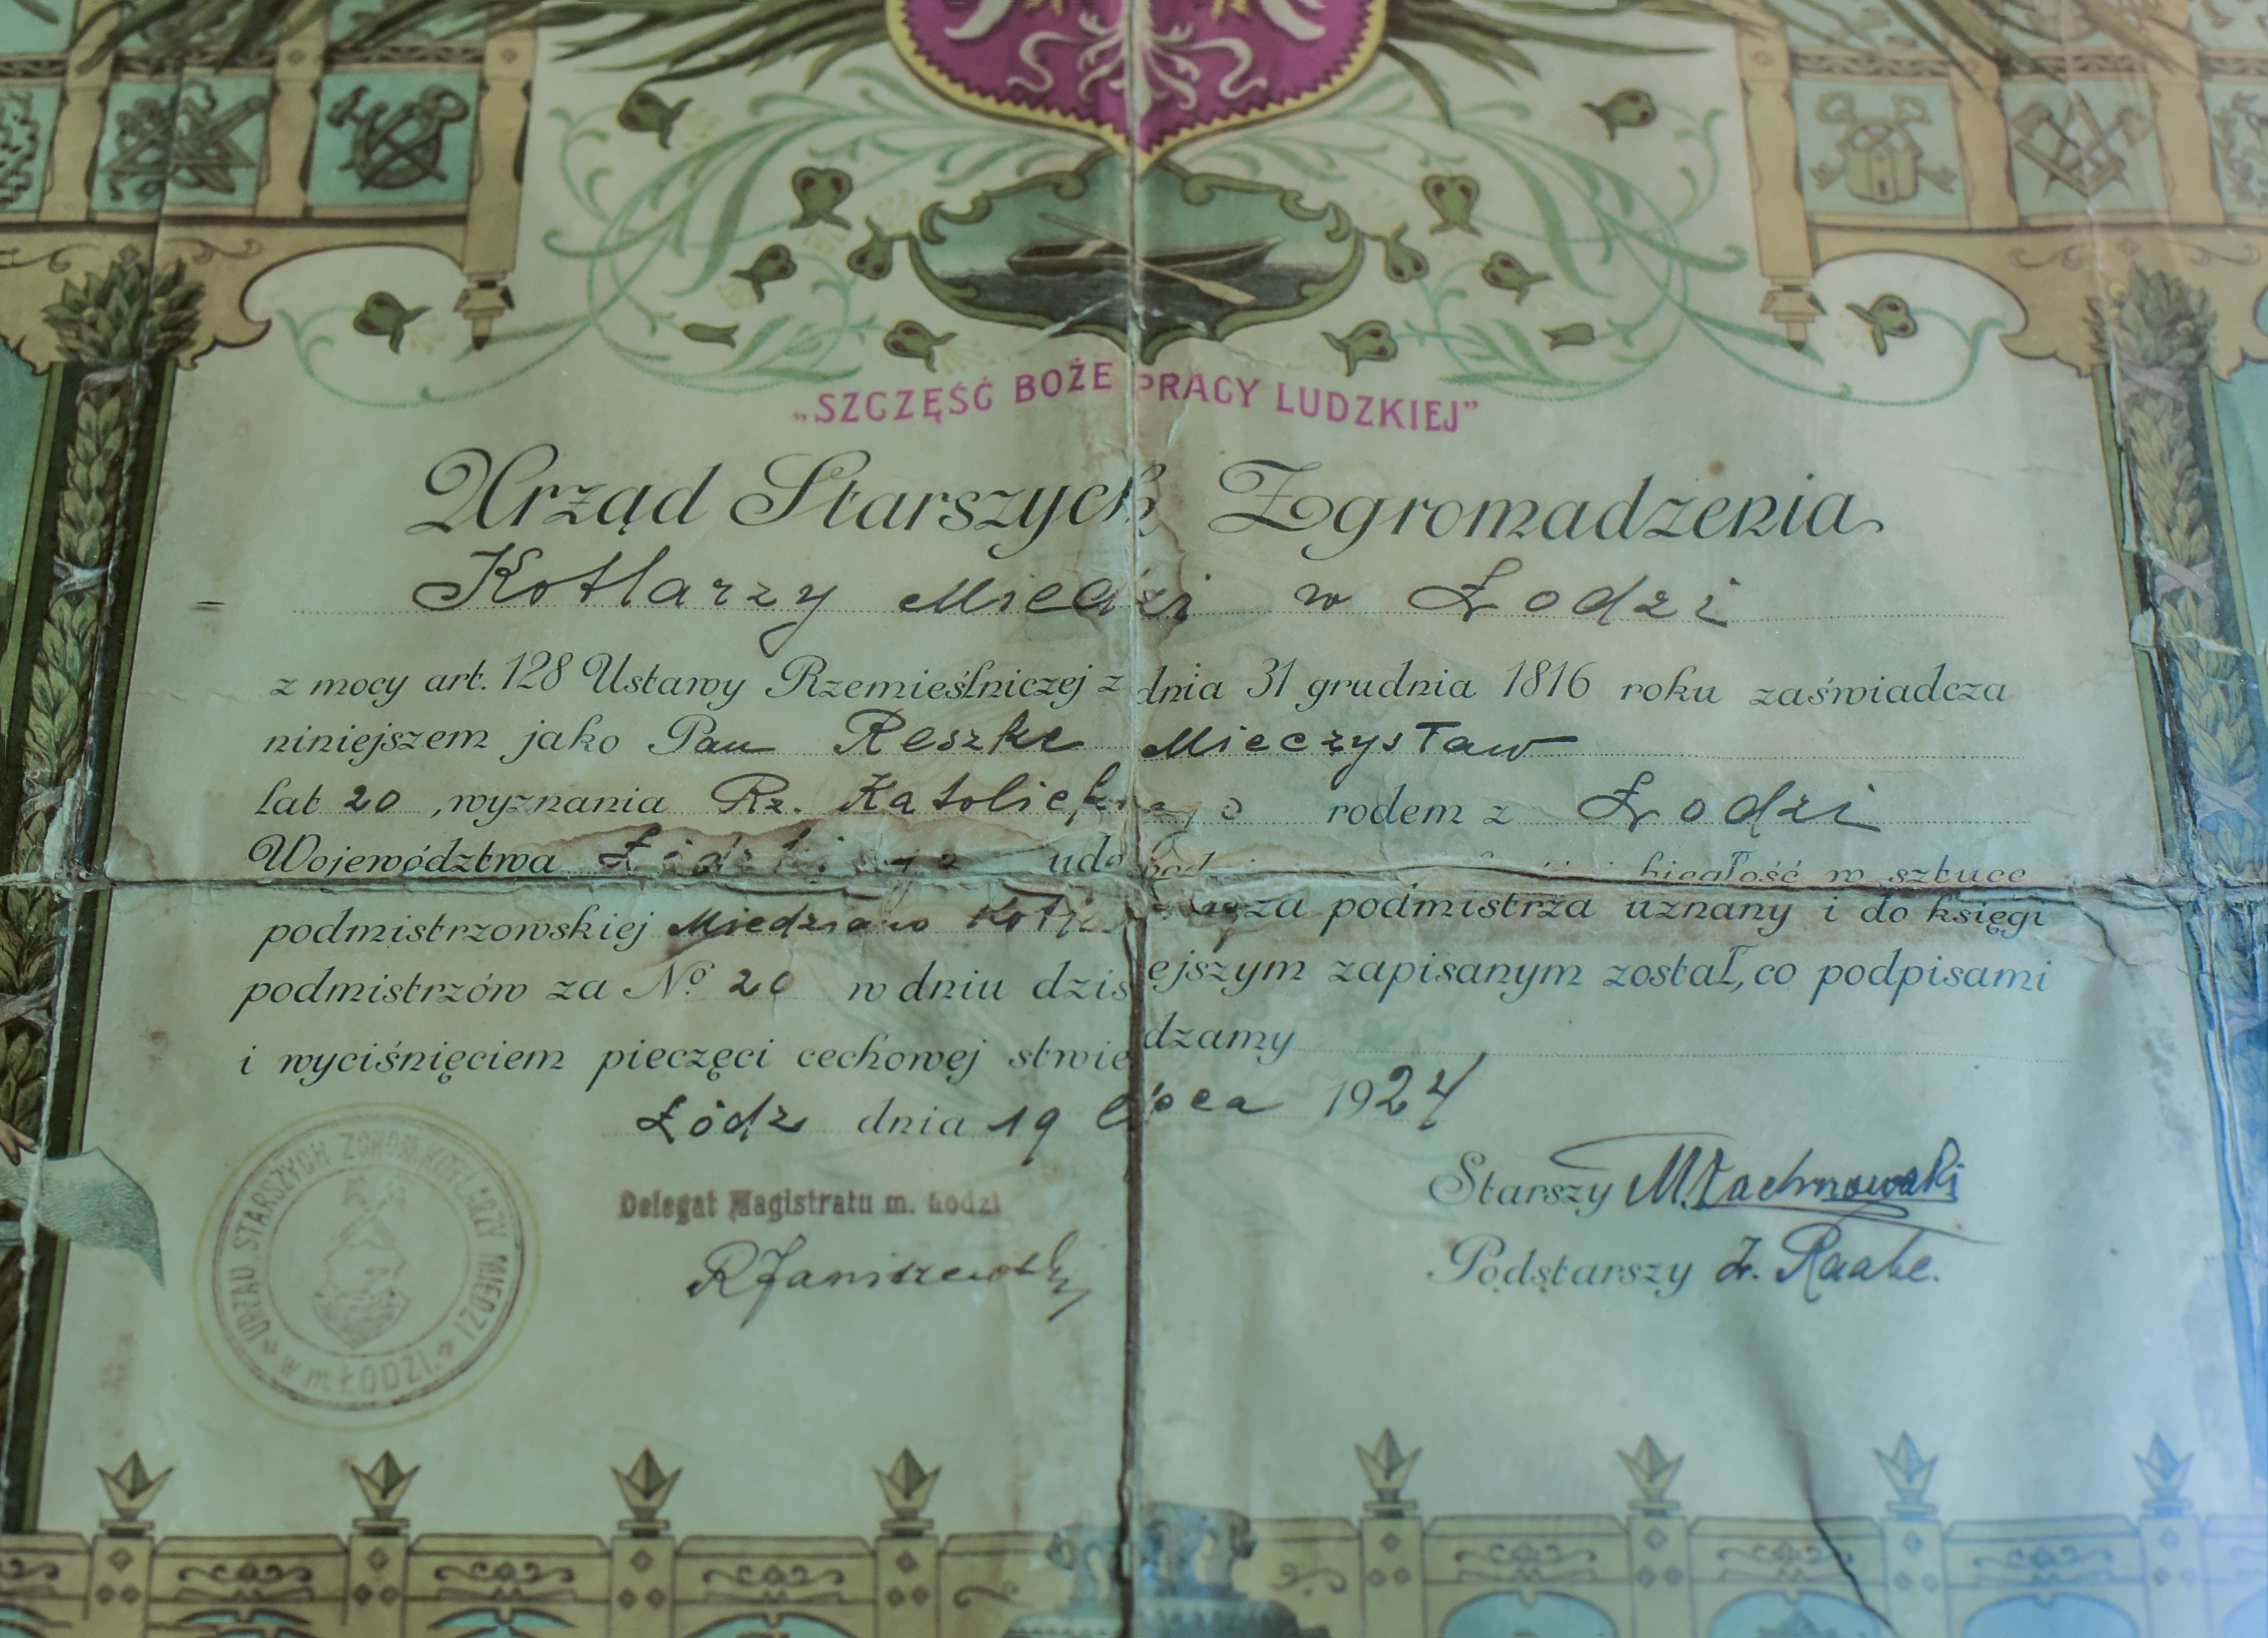 „SZCZĘŚĆ BOŻE PRACY LUDZKIEJ”
Urząd Starszych Zgromadzenia
Kotlarzy Miedzi w Łodzi
z mocy art. 128 Ustawy Rzemieślniczej z dnia 31 grudnia 1816 roku zaświadcza
niniejszem jako Pan Reszke Mieczysław
lat 20, wyznania Rz. Katolickiego rodem z Łodzi
Województwa biegłość w sztuce
podmistrzowskiej za podmistrza uznany i do księgi
podmistrzów za No 20 w dniu dzisiejszym zapisanym został, co podpisami
i wyciśnięciem pieczęci cechowej stwierdzamy
Łódź dnia 19 lipca 1924
URZĄD STARSZYCH ZGROM. KOTLARZY MIEDZI
w m ŁODZI.
Delegat Magistratu m. Łodzi
RJaniszewski
Starszy
Podstarszy Z. Raabe.